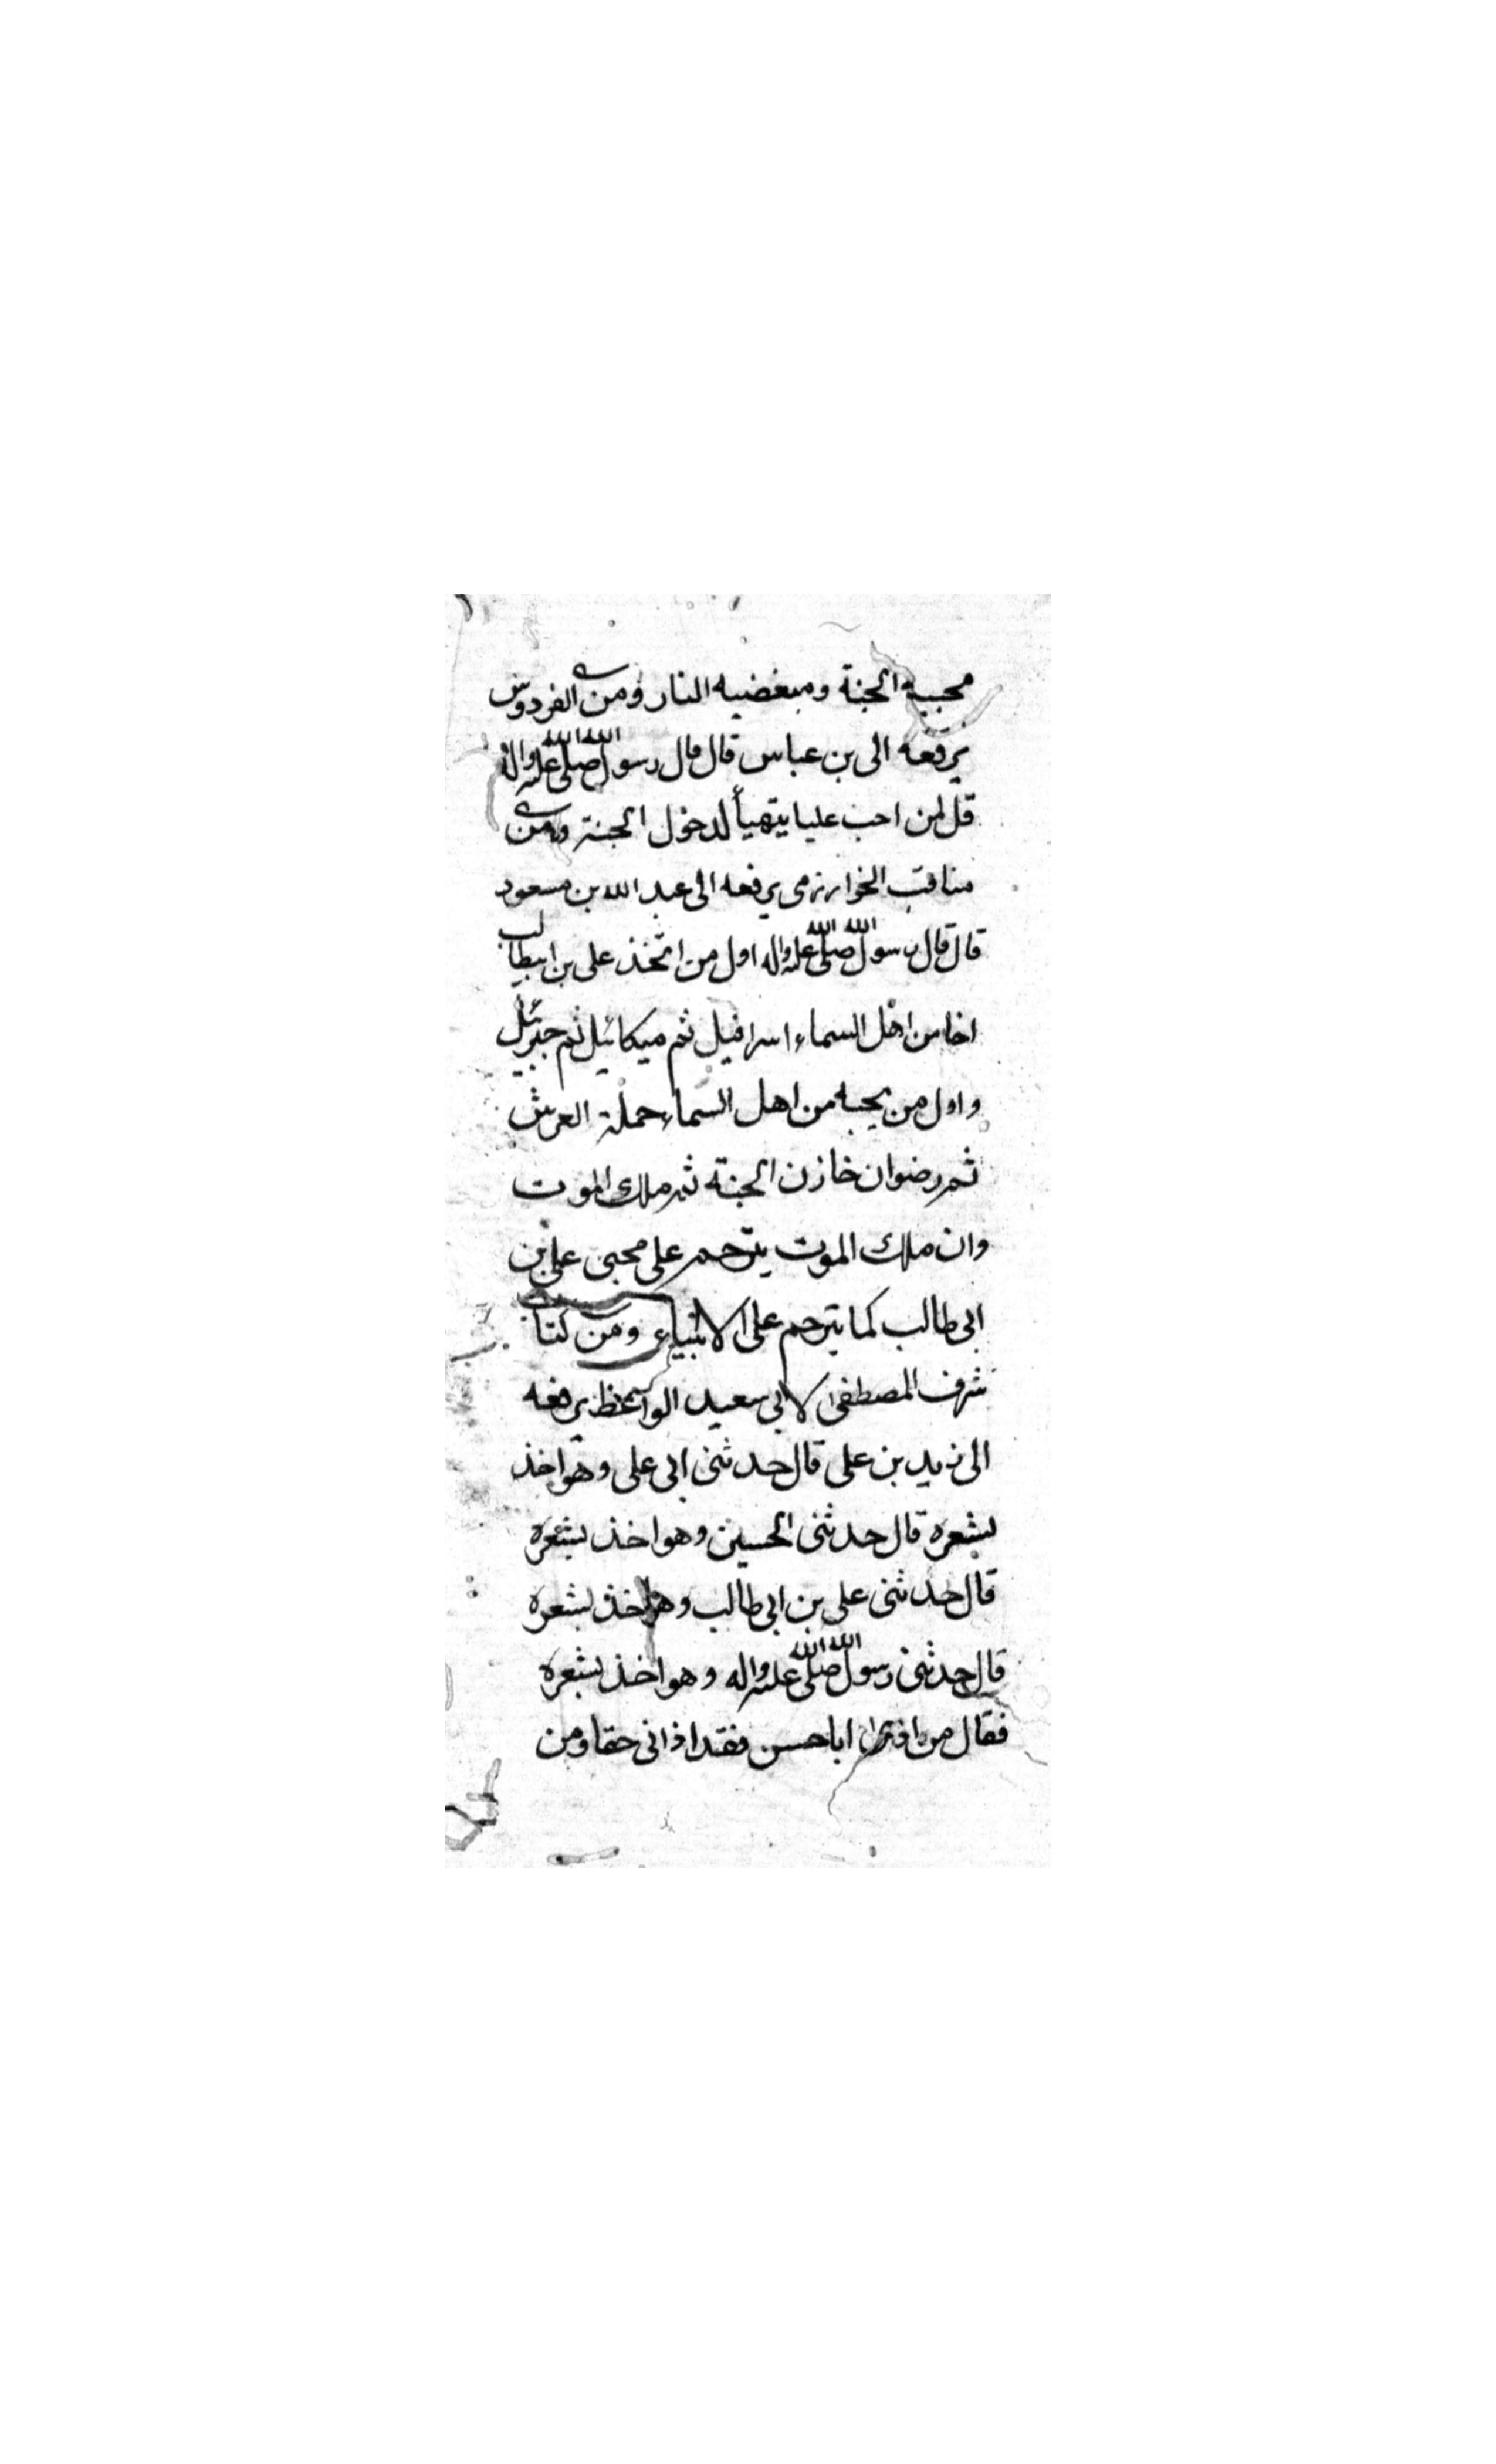 محبيه الجنة ومبغضيه النار ومن الفردوس
يرفعه الى بن عباس قال قال رسول الله صلى الله عليه واله
قل لمن احب عليا يتهيأ لدخول الجنة ومن
مناقب الخوارزمى يرفعه الى عبد الله بن مسعود
قال قال رسول الله صلى الله عليه واله اول من اتخذ على بن ابيطالب
اخا من اهل السماء اسرافيل ثم ميكائيل ثم جبرئيل
واول من يحبه من اهل السماء حملة العرش
ثم رضوان خازن الجنة ثم ملك الموت
وان ملك الموت يترحم على محبى على بن
ابى طالب كما يترحم على الانبياء ومن كتاب
شرف المصطفى لابى سعيد الواعظ يرفعه
الى زيد بن على قال حدثنى ابى على وهو اخذ
بشعره قال حدثنى الحسين وهو اخذ بشعره
قال حدثنى على بن ابى طالب وهو اخذ بشعره
قال حدثنى رسول الله صلى الله عليه واله وهو اخذ بشعره
فقال من اباحسن فقد اذانى حقا ومن